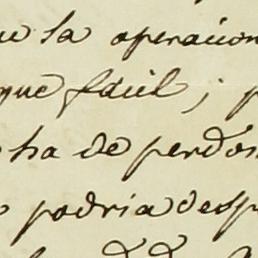 la operacion
que fácil; p
ha de perdon
podria desp